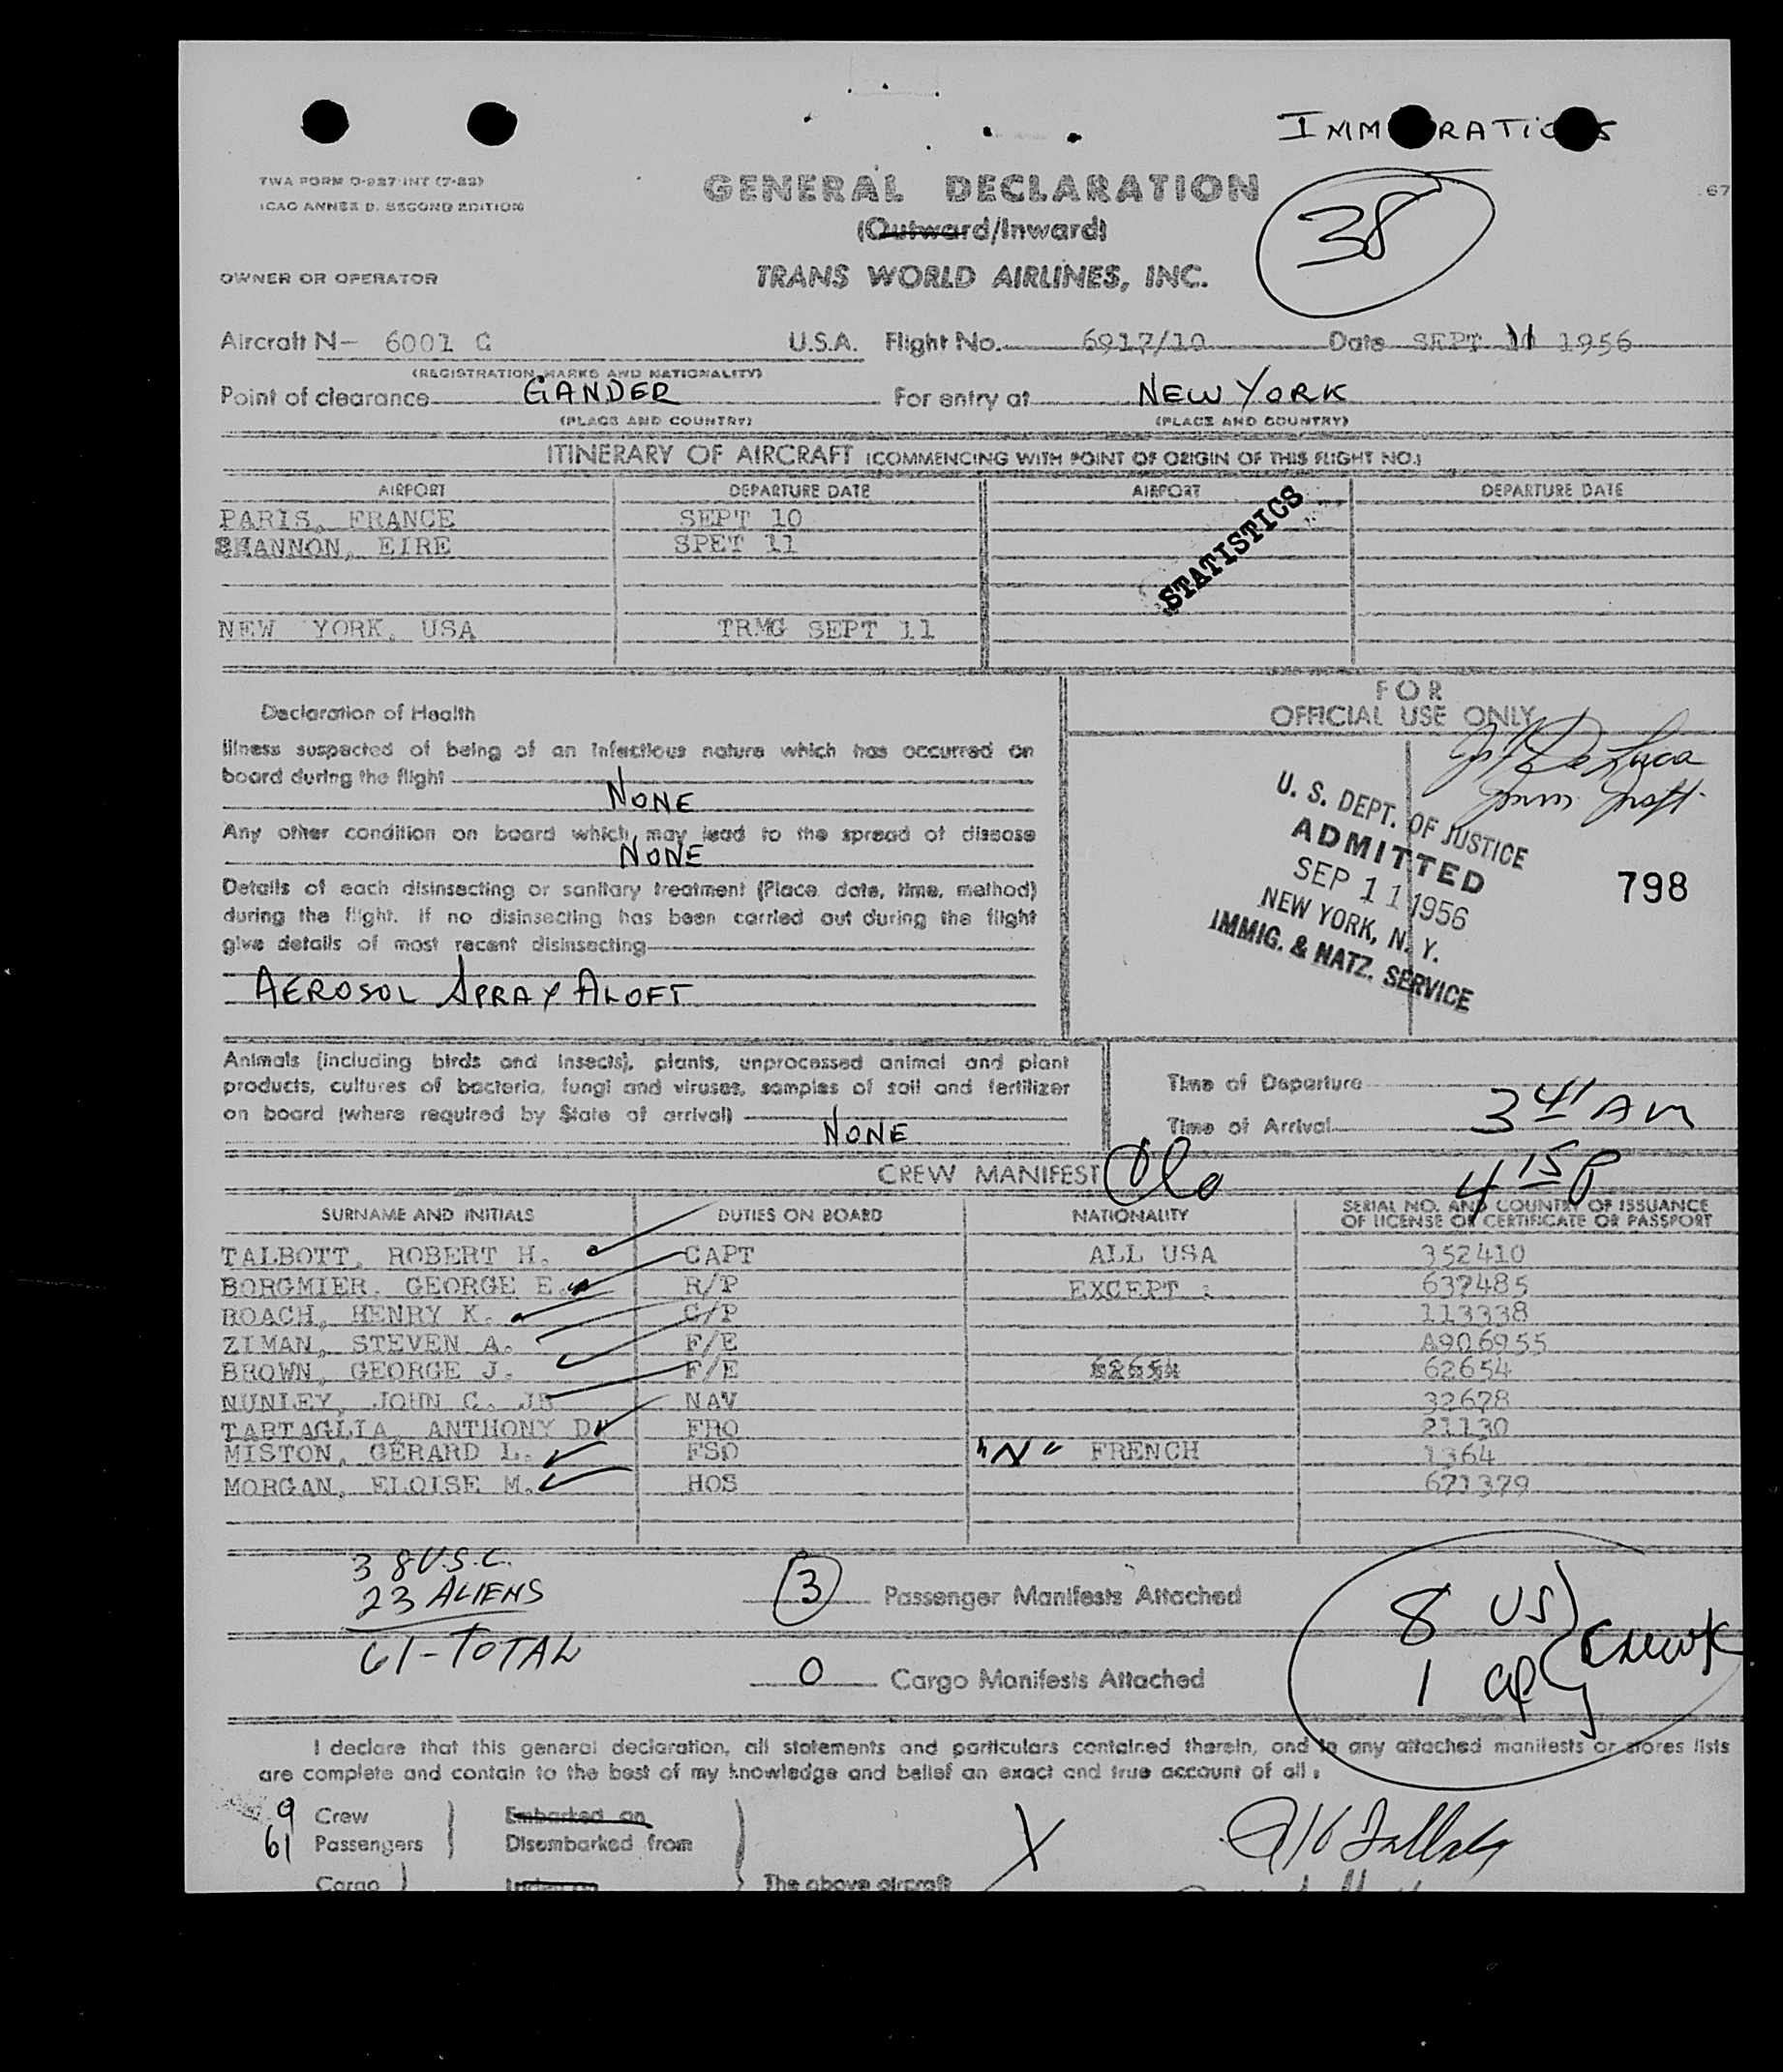 TWA FORM O-937-INT (7-53)
ICAO ANNEX 9, SECOND EDITION
GENERAL DECLARATION
(Outward/Inward)
38
67
OWNER OR OPERATOR
TRANS WORLD AIRLINES, INC.
Aircraft N- 6001 C U.S.A. Flight No. 6917/10 Date SEPT 11 1956
(REGISTRATION MARKS AND NATIONALITY)
Point of clearance GANDER For entry at NEW YORK
(PLACE AND COUNTRY) (PLACE AND COUNTRY)
ITINERARY OF AIRCRAFT (COMMENCING WITH POINT OF ORIGIN OF THIS FLIGHT NO.)
AIRPORT DEPARTURE DATE AIRPORT DEPARTURE DATE
PARIS, FRANCE SEPT 10
SHANNON, EIRE SPET 11
STATISTICS
NEW YORK, USA TRMG SEPT 11
FOR
OFFICIAL USE ONLY
Declaration of Health
Illness suspected of being of an infectious nature which has occurred on
board during the flight
NONE
Any other condition on board which may lead to the spread of disease
NONE
Details of each disinsecting or sanitary treatment (Place, date, time, method)
during the flight. If no disinsecting has been carried out during the flight
give details of most recent disinsecting
AEROSOL SPRAY ALOFT
De Luca
U. S. DEPT. OF JUSTICE
ADMITTED
SEP 11 1956
NEW YORK, N. Y.
IMMIG. & NATZ. SERVICE
798
Animals (including birds and insects), plants, unprocessed animal and plant
products, cultures of bacteria, fungi and viruses, samples of soil and fertilizer
on board (where required by State of arrival)
NONE
Time of Departure
Time of Arrival 3 41 AM
4 15 P
CREW MANIFEST
SURNAME AND INITIALS DUTIES ON BOARD NATIONALITY SERIAL NO. AND COUNTRY OF ISSUANCE
OF LICENSE OR CERTIFICATE OR PASSPORT
TALBOTT, ROBERT H. CAPT ALL USA 352410
BORGMIER, GEORGE E. R/P EXCEPT : 637485
ROACH, HENRY K. C/P 113338
ZIMAN, STEVEN A. F/E A906955
BROWN, GEORGE J. F/E 62654 62654
NUNLEY, JOHN C. JR NAV 32678
TARTAGLIA, ANTHONY D. FRO 21130
MISTON, GERARD L. FSO "N" FRENCH 1364
MORGAN, ELOISE M. HOS 671379
38 U.S.C.
23 ALIENS
61-TOTAL
3 Passenger Manifests Attached
0 Cargo Manifests Attached
8 US
1
I declare that this general declaration, all statements and particulars contained therein, and in any attached manifests or stores lists
are complete and contain to the best of my knowledge and belief an exact and true account of all :
9 Crew Embarked on
61 Passengers Disembarked from
Cargo The above aircraft
X